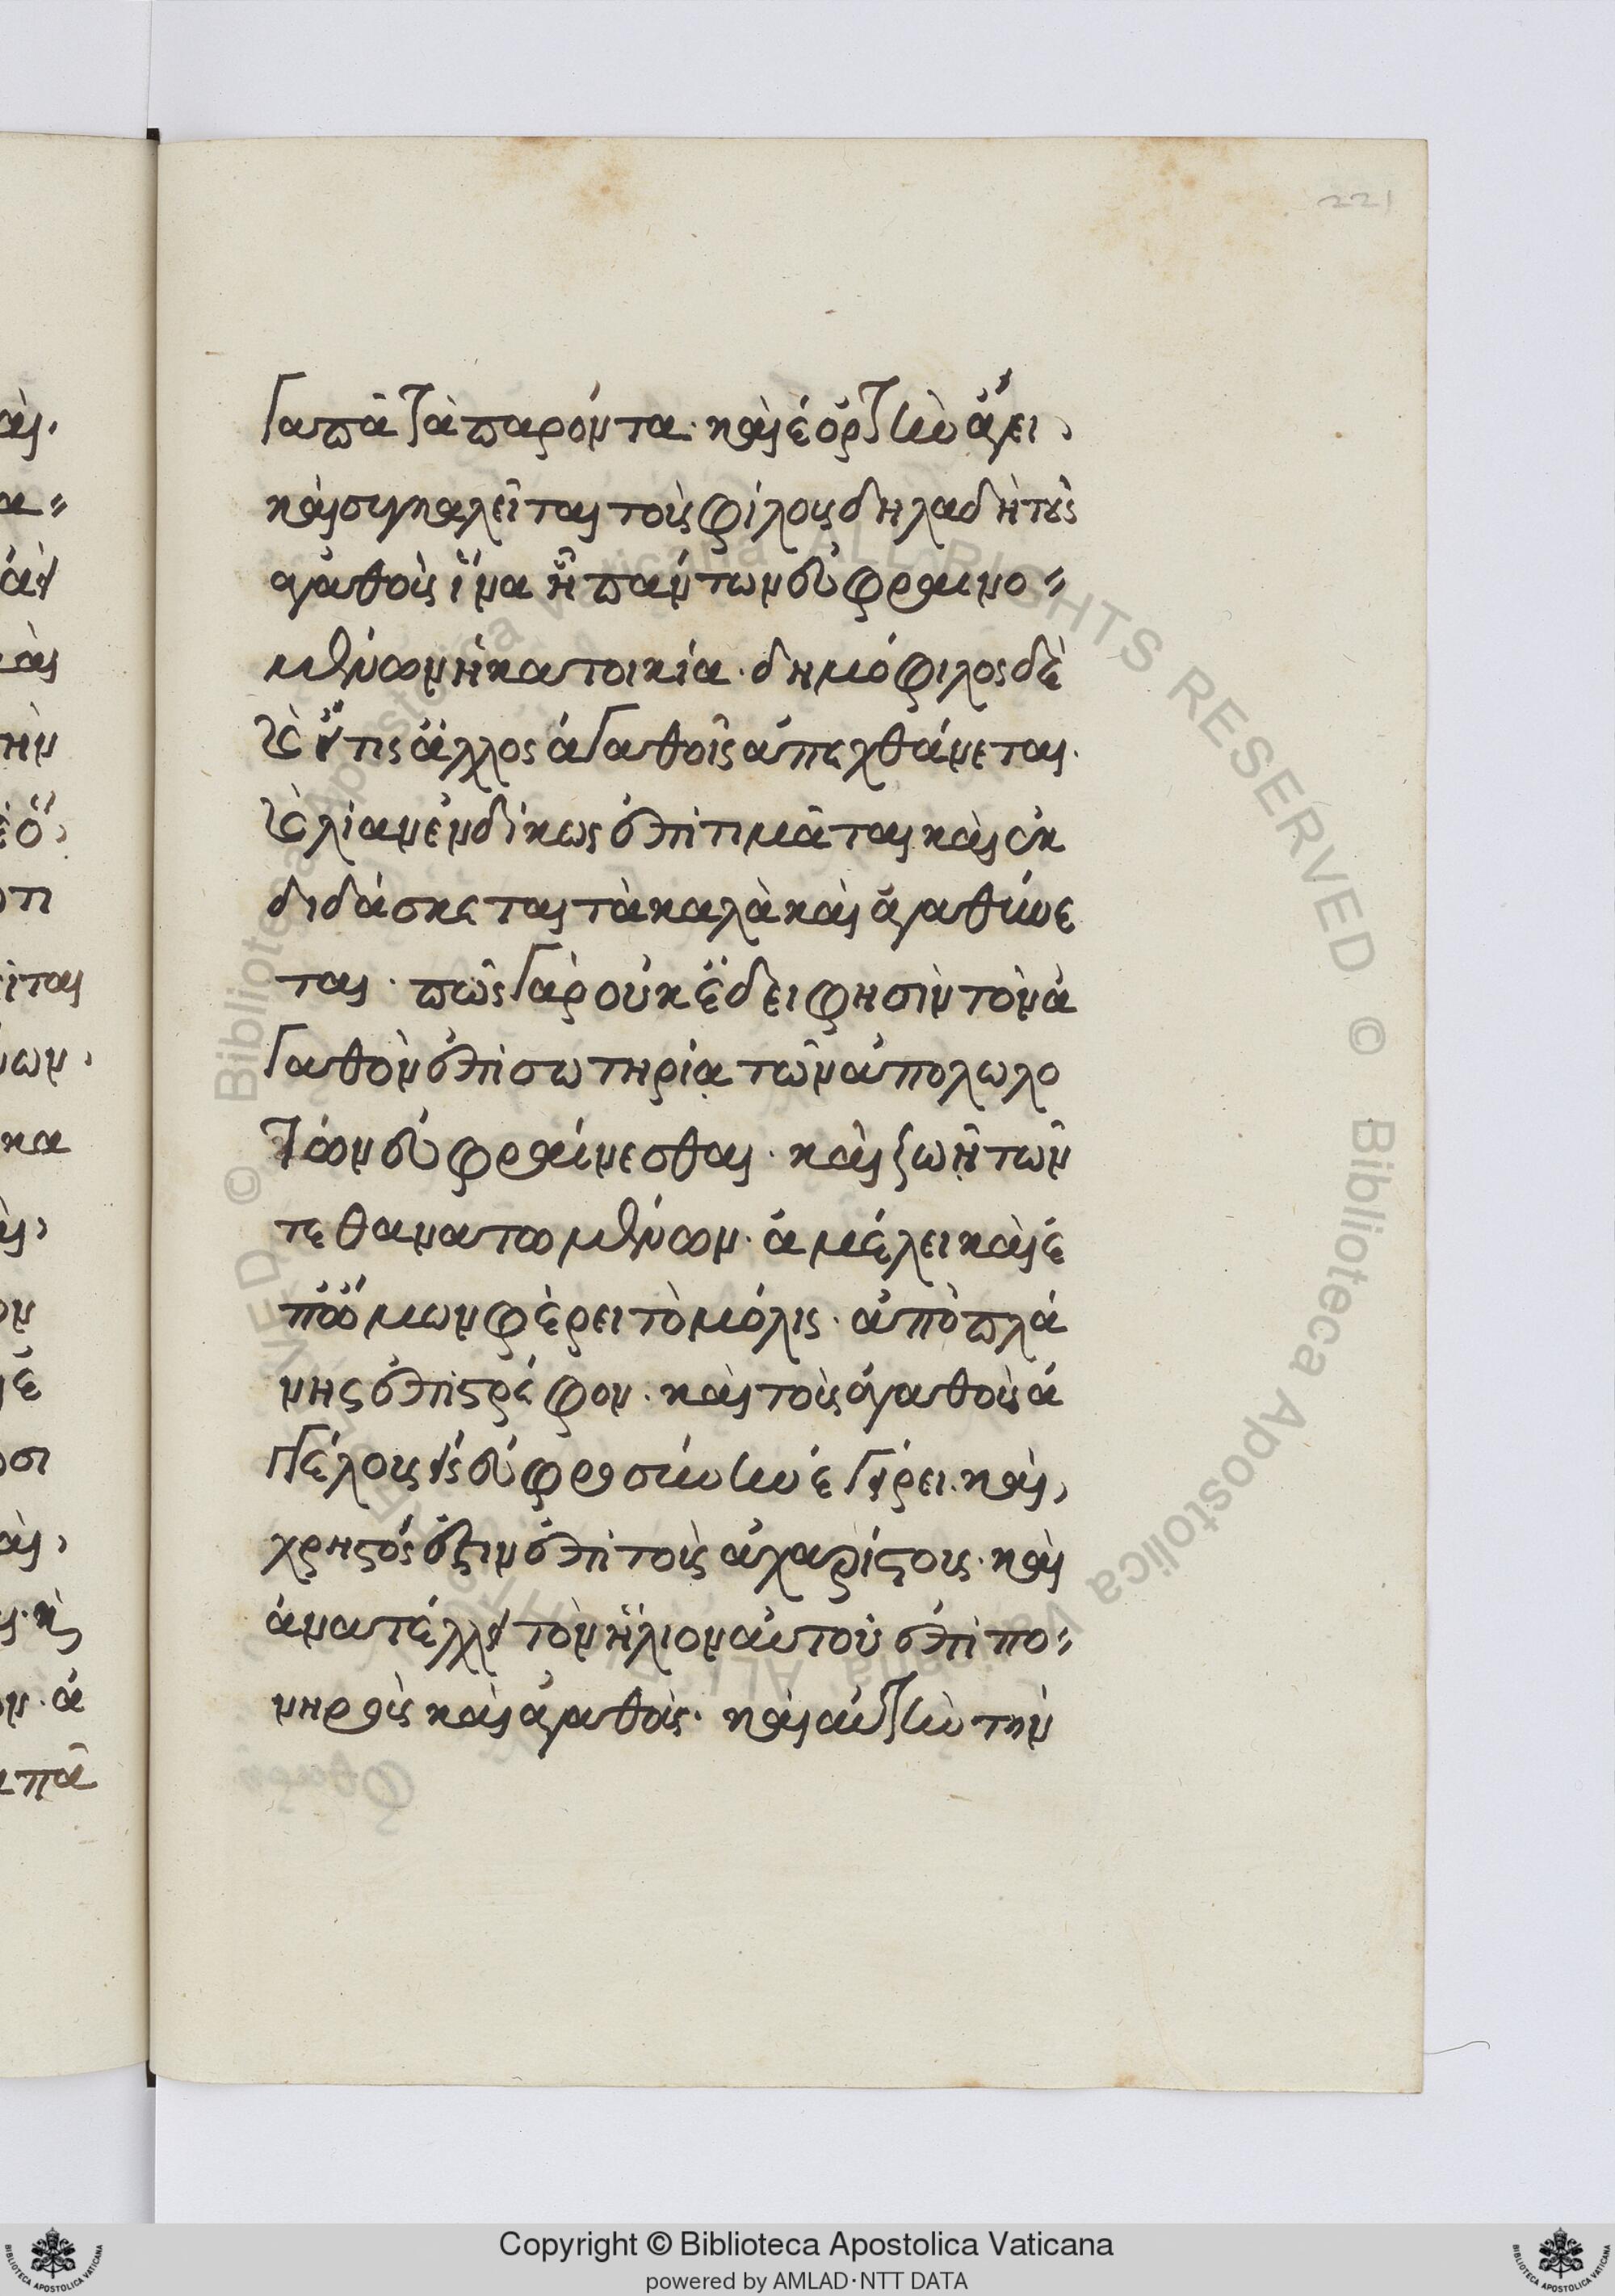 221
γαπᾶ τὰ παρόντα· καὶ ἑορτὴν ἄγει,
καὶ συγκαλεῖται τοὺς φίλους δηλαδὴ τοὺς
ἀγαθοὺς ἵνα ἢ πάντων εὐφραινο=
μένων ἡ κατοικία. δημόφιλος δὲ
καὶ εἴ τις ἄλλος ἀγαθοῖς ἀπεχθάνεται.
καὶ λίαν ἐνδίκως ἐπιτιμᾶται καὶ ἐκ
διδάσκεται τὰ καλὰ καὶ ἀγαθύνε
ται. πῶς γὰρ οὐκ ἔδει φησὶν τὸν ἀ
γαθὸν ἐπὶ σωτηρία τῶν ἀπολωλό
των εὐφραίνεσθαι. καὶ ζωῆ τῶν
τεθανατωμένων. ἀμέλει καὶ ἐ
π' ὤμων φέρει τὸ μόλις ἀπὸ πλά
νης ἐπιστρέφον. καὶ τοὺς ἀγαθοὺς ἀ
γγέλους εἰς εὐφροσύνην ἐγείρει. καὶ,
χρηστός ἐστιν ἐπὶ τοὺς ἀχαρίστους. καὶ
ἀνατέλλει τὸν ἥλιον αὐτοῦ ἐπὶ πο=
νηροὺς καὶ ἀγαθούς. καὶ αὐτὴν τὴν
Copyright © Biblioteca Apostolica Vaticana
powered by AMLAD·NTT DATA